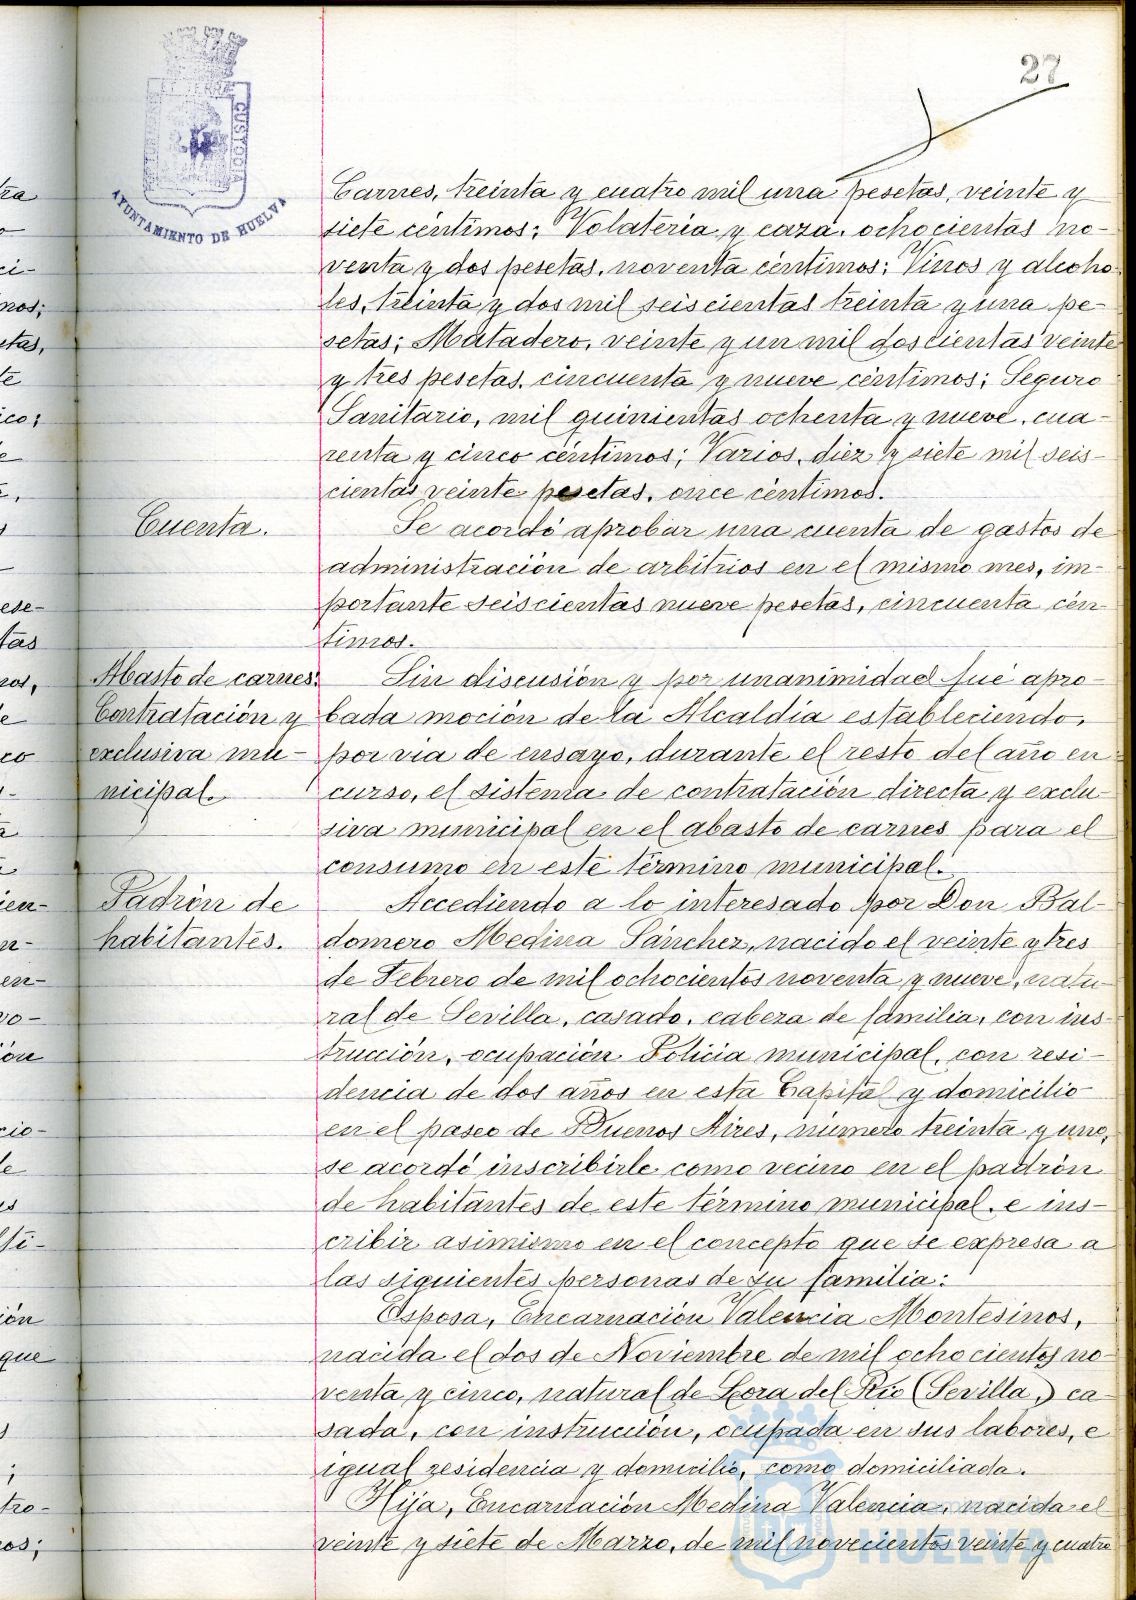 27
CUSTODIA
AYUNTAMIENTO DE HUELVA
Carnes, treinta y cuatro mil una pesetas, veinte y
siete céntimos; Volatería y caza, ochocientas no-
venta y dos pesetas, noventa céntimos; Vinos y alcoho-
les, treinta y dos mil seiscientas treinta y una pe-
setas; Matadero, veinte y un mil doscientas veinte
y tres pesetas, cincuenta y nueve céntimos; Seguro
Sanitario, mil quinientas ochenta y nueve, cua-
renta y cinco céntimos; Varios, diez y siete mil seis-
cientas veinte pesetas, once céntimos.
Cuenta.
Se acordó aprobar una cuenta de gastos de
administración de arbitrios en el mismo mes, im-
portante seiscientas nueve pesetas, cincuenta cén-
timos.
Abasto de carnes:
Contratación y
exclusiva mu-
nicipal.
Sin discusión y por unanimidad fué apro-
bada moción de la Alcaldía estableciendo,
por via de ensayo, durante el resto del año en
curso, el sistema de contratación directa y exclu-
siva municipal en el abasto de carnes para el
consumo en este término municipal.
Padrón de
habitantes.
Accediendo a lo interesado por Don Bal-
domero Medina Sánchez, nacido el veinte y tres
de Febrero de mil ochocientos noventa y nueve, natu-
ral de Sevilla, casado, cabeza de familia, con ins-
trucción, ocupación Policía municipal, con resi-
dencia de dos años en esta Capital y domicilio
en el paseo de Buenos Aires, número treinta y uno,
se acordó inscribirle como vecino en el padrón
de habitantes de este término municipal, e ins-
cribir asimismo en el concepto que se expresa a
las siguientes personas de su familia:
Esposa, Encarnación Valencia Montesinos,
nacida el dos de Noviembre de mil ochocientos no-
venta y cinco, natural de Lora del Río (Sevilla,) ca-
sada, con instrucción, ocupada en sus labores, e
igual residencia y domicilio, como domiciliada.
Hija, Encarnación Medina Valencia, nacida el
veinte y siete de Marzo, de mil novecientos veinte y cuatro
HUELVA